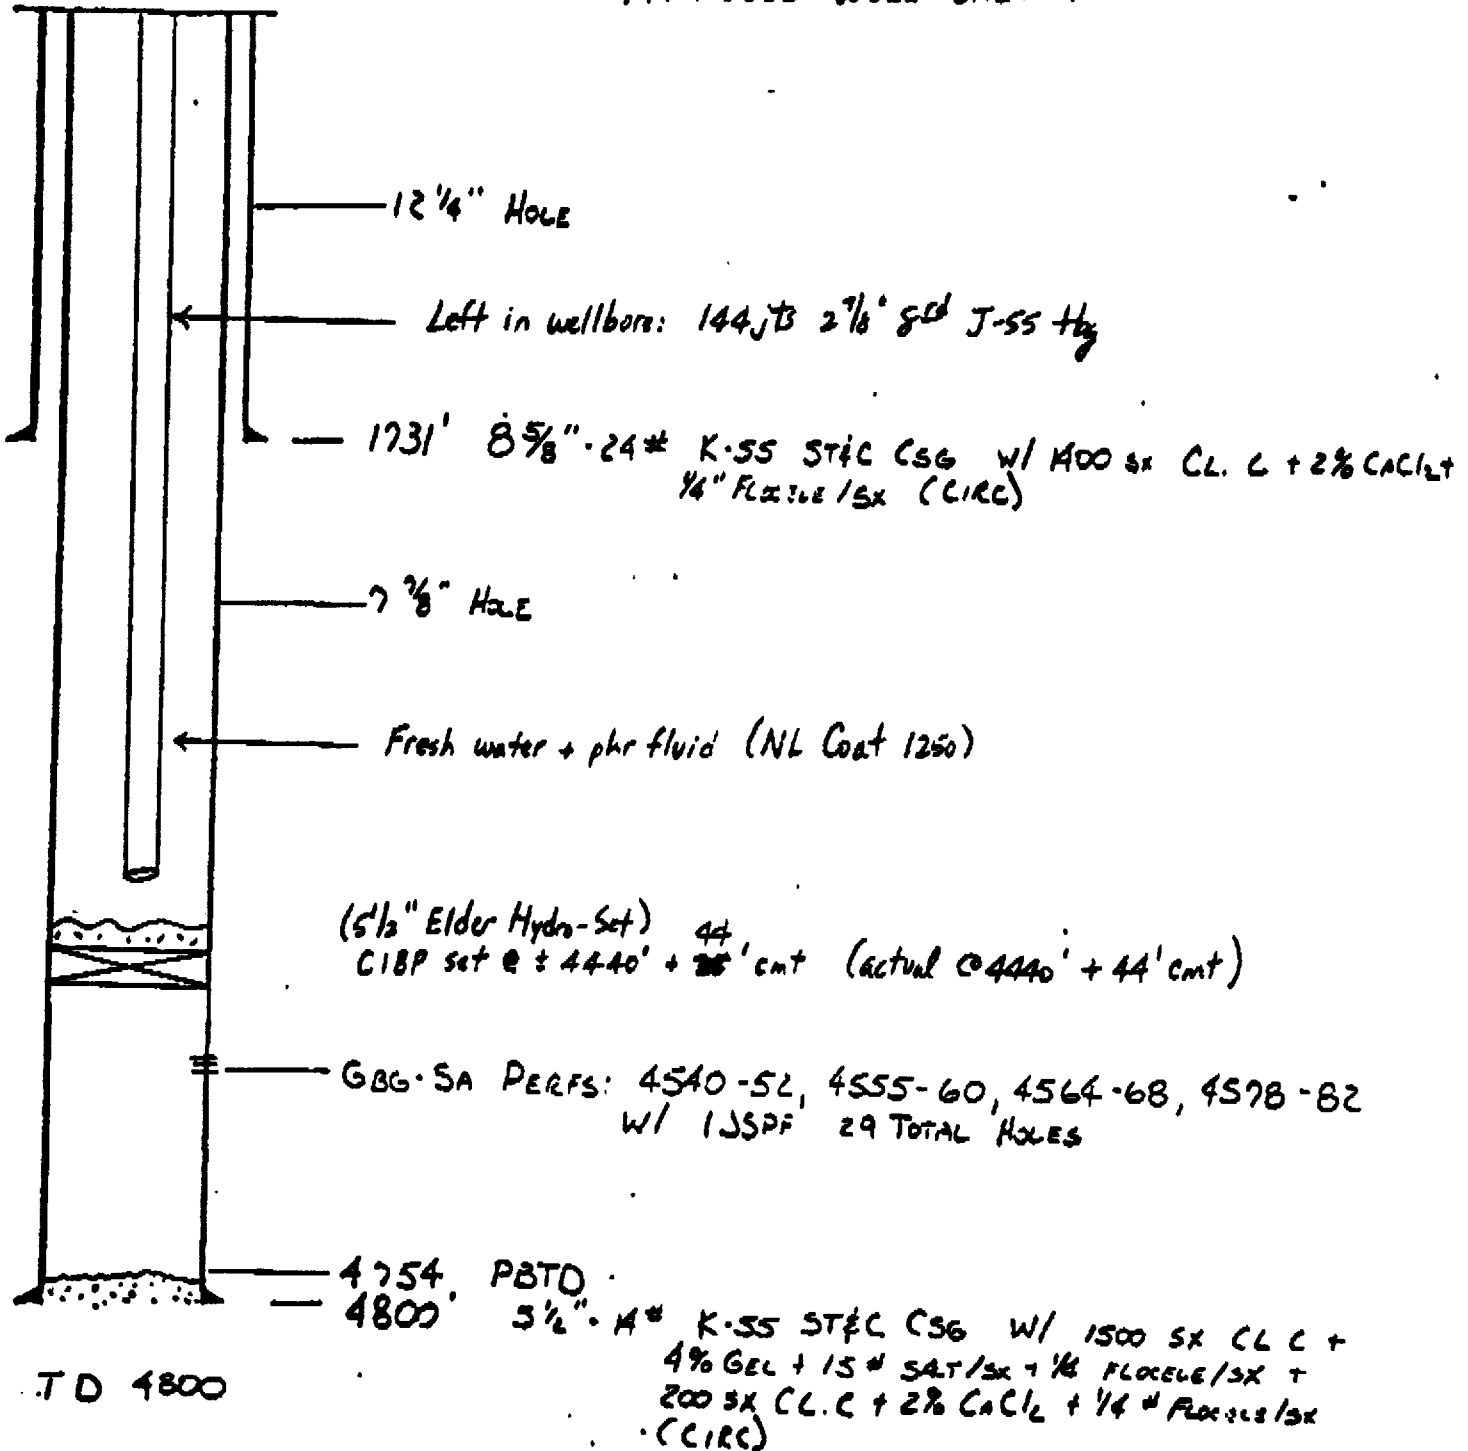 12 1/4" HOLE
Left in wellbore: 144 jts 2 7/8" 8rd J-55 tbg
1731' 8 5/8"·24# K·55 ST&C CSG W/ 1400 SX CL. C + 2% CACl2 +
1/4" FLOCELE/SX (CIRC)
7 7/8" HOLE
Fresh water + pkr fluid (NL Coat 1250)
(5 1/2" Elder Hydro-Set)
44
CIBP set @ ± 4440' + ' cmt (actual @ 4440' + 44' cmt)
GBG·SA PERFS: 4540-52, 4555-60, 4564-68, 4578-82
W/ 1JSPF 29 TOTAL HOLES
4754' PBTD
4800' 5 1/2"· 14# K·55 ST&C CSG W/ 1500 SX CL C +
4% GEL + 15# SALT/SX + 1/4 FLOCELE/SX +
200 SX CL. C + 2% CACl2 + 1/4# FLOCELE/SX
(CIRC)
TD 4800